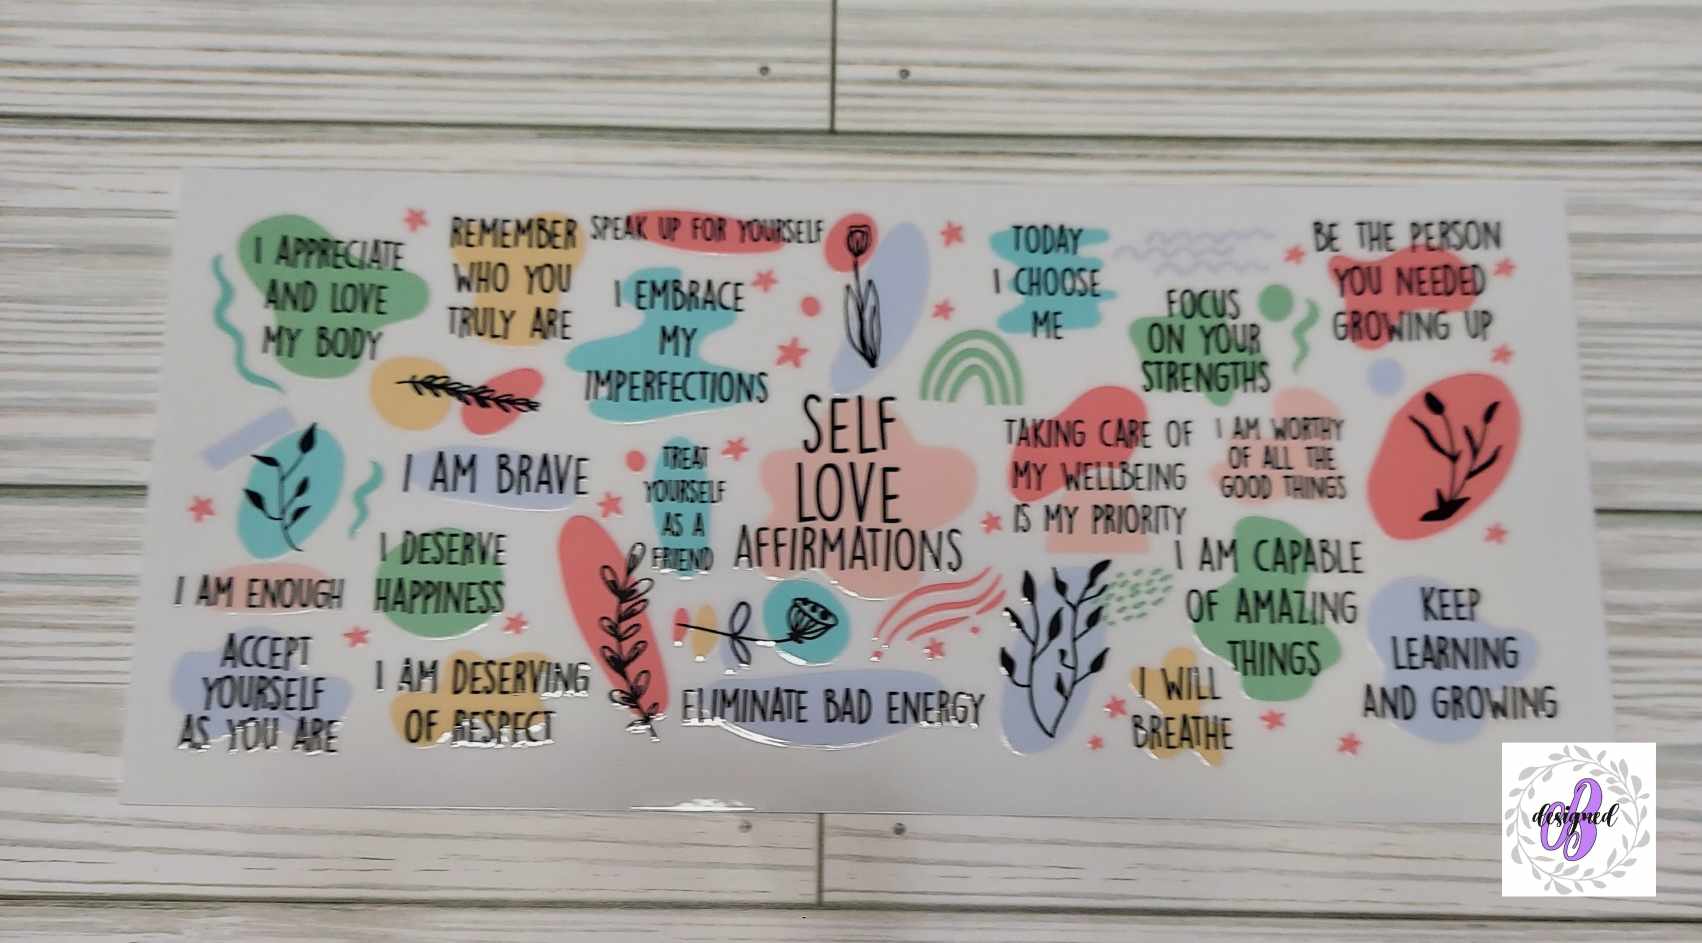 I APPRECIATE
AND LOVE
MY BODY
REMEMBER
WHO YOU
TRULY ARE
SPEAK UP FOR YOURSELF
I EMBRACE
MY
IMPERFECTIONS
TODAY
I CHOOSE
ME
FOCUS
ON YOUR
STRENGTHS
BE THE PERSON
YOU NEEDED
GROWING UP
I AM BRAVE
TREAT
YOURSELF
AS A
FRIEND
SELF
LOVE
AFFIRMATIONS
TAKING CARE OF
MY WELLBEING
IS MY PRIORITY
I AM WORTHY
OF ALL THE
GOOD THINGS
I AM ENOUGH
I DESERVE
HAPPINESS
I AM CAPABLE
OF AMAZING
THINGS
KEEP
LEARNING
AND GROWING
ACCEPT
YOURSELF
AS YOU ARE
I AM DESERVING
OF RESPECT
ELIMINATE BAD ENERGY
I WILL
BREATHE
B
designed